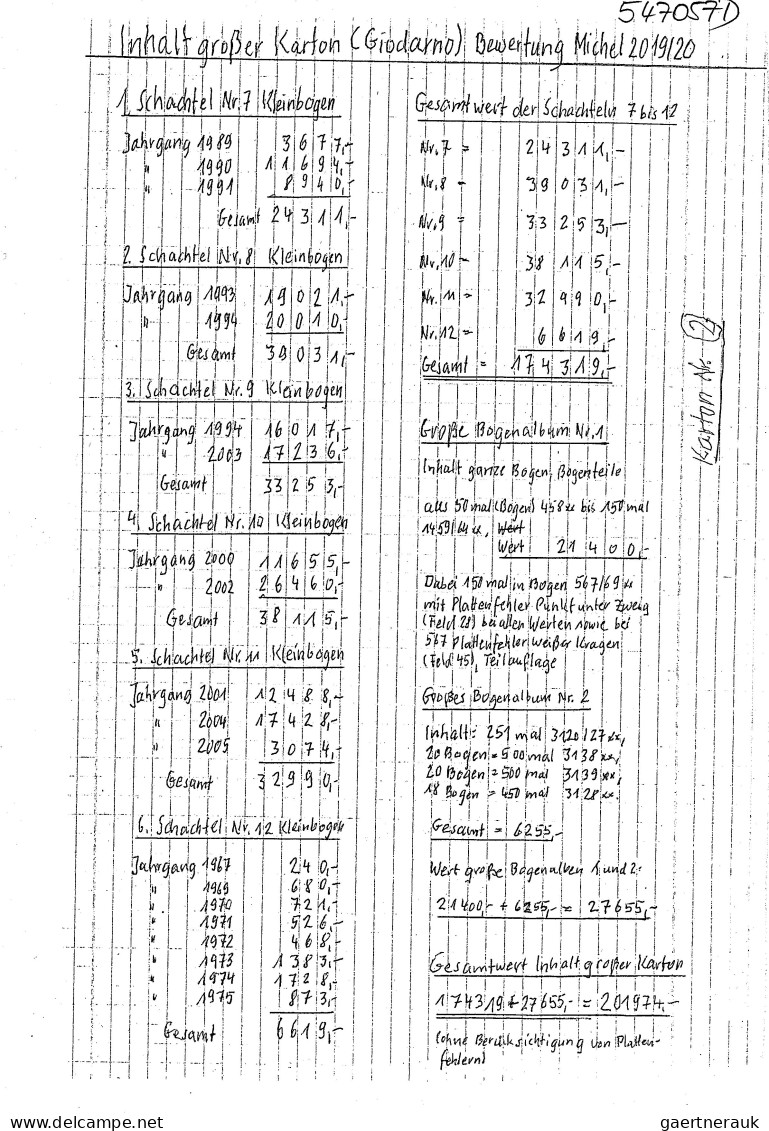 547057D
Inhalt großer Karton (Giodarno) Bewertung Michel 2019/20
1. Schachtel Nr. 7 Kleinbogen
Jahrgang 1989 3677,-
" 1990 11694,-
" 1991 8940,-
Gesamt 24311,-
2. Schachtel Nr. 8 Kleinbogen
Jahrgang 1993 19021,-
" 1994 20010,-
Gesamt 39031,-
3. Schachtel Nr. 9 Kleinbogen
Jahrgang 1994 16017,-
" 2003 17236,-
Gesamt 33253,-
4. Schachtel Nr. 10 Kleinbogen
Jahrgang 2000 11655,-
" 2002 26460,-
Gesamt 38115,-
5. Schachtel Nr. 11 Kleinbogen
Jahrgang 2001 12488,-
" 2004 17428,-
" 2005 3074,-
Gesamt 32990,-
6. Schachtel Nr. 12 Kleinbogen
Jahrgang 1967 240,-
" 1969 680,-
" 1970 721,-
" 1971 526,-
" 1972 468,-
" 1973 1383,-
" 1974 1728,-
" 1975 873,-
Gesamt 6619,-
Gesamtwert der Schachteln 7 bis 12
Nr. 7 = 24311,-
Nr. 8 = 39031,-
Nr. 9 = 33253,-
Nr. 10 = 38115,-
Nr. 11 = 32990,-
Nr. 12 = 6619,-
Gesamt = 174319,-
Karton Nr. 2
Große Bogenalbum Nr. 1
Inhalt ganze Bogen, Bogenteile
aus 50 mal (Bogen) 458** bis 150 mal
1459/64**, Wert
Wert 21400,-
Dabei 150 mal in Bogen 567/69**
mit Plattenfehler Punkt unter Zweig
(Feld 28) bei allen Werten sowie bei
567 Plattenfehler weißer Kragen
(Feld 45), Teilauflage
Großes Bogenalbum Nr. 2
Inhalt: 251 mal 3120/27**,
20 Bogen = 500 mal 3138**,
20 Bogen = 500 mal 3139**,
18 Bogen = 450 mal 3128**.
Gesamt = 6255,-
Wert große Bogenalben 1 und 2:
21400,- + 6255,- = 27655,-
Gesamtwert Inhalt großer Karton
174319 + 27655,- = 201974,-
(ohne Berücksichtigung von Platten-
fehlern)
www.delcampe.net
gaertnerauk